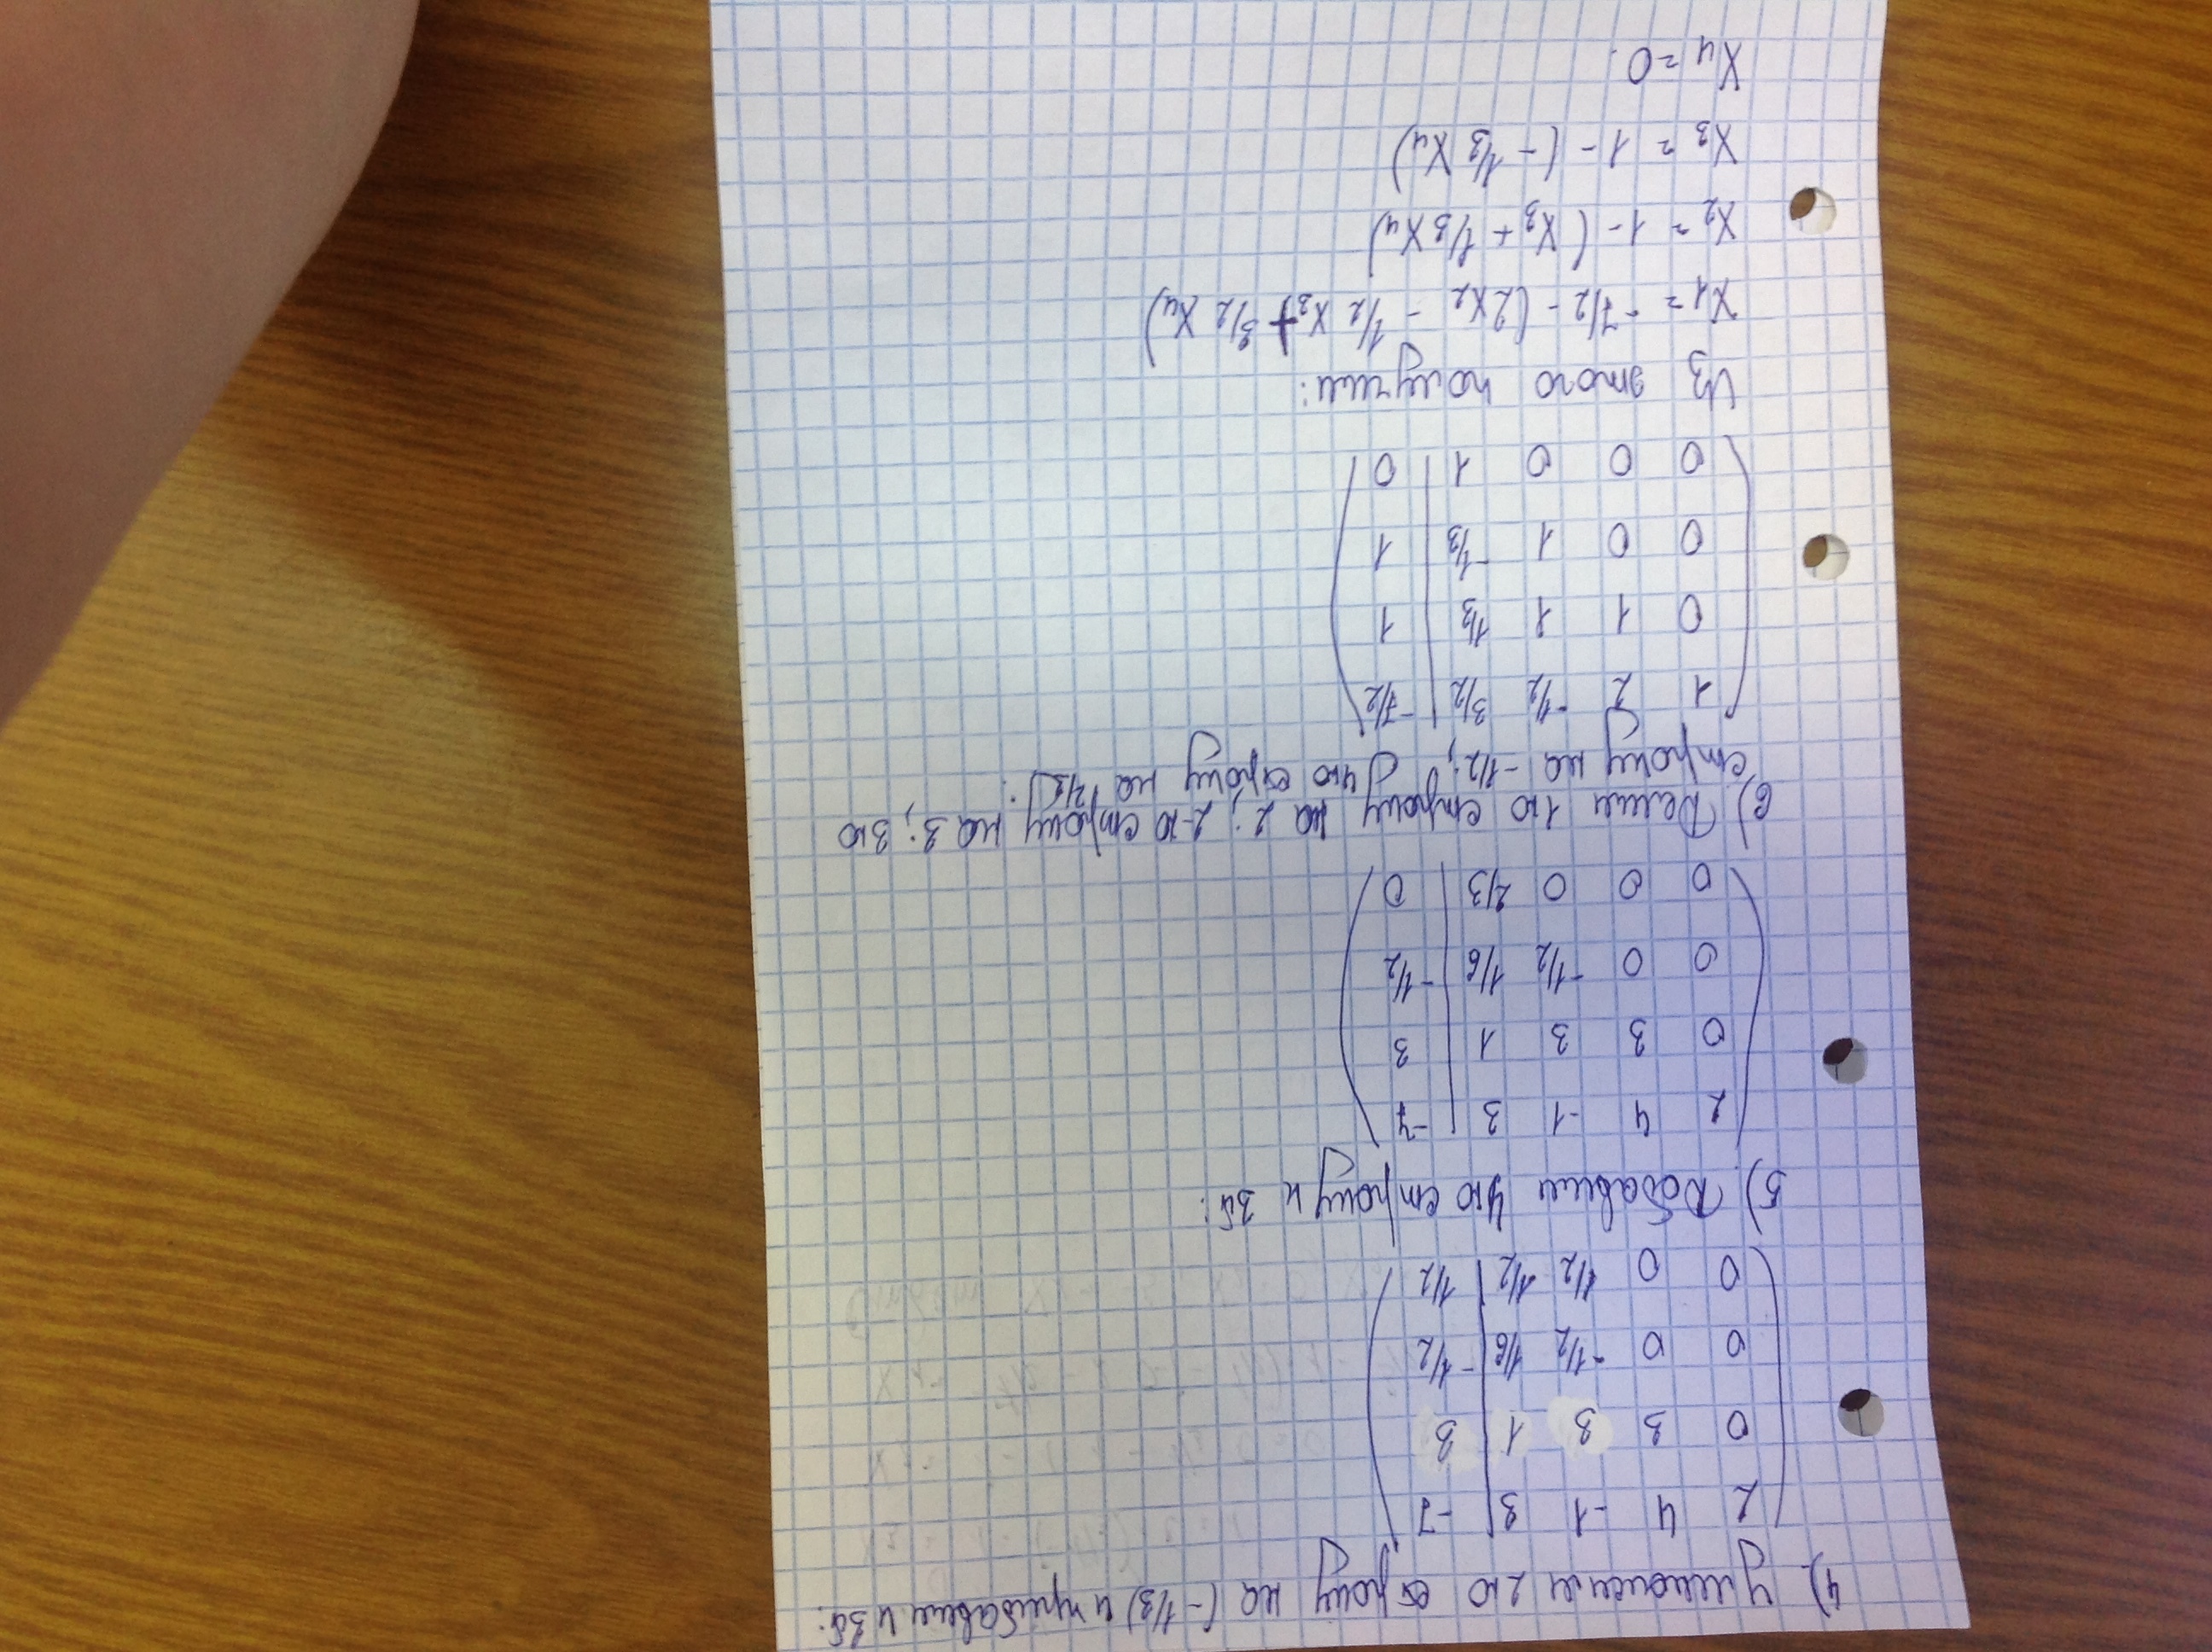 4) Умножим 2ю строку на (-1/3) и прибавим к 3й:
2 4 -1 3 | -7
0 3 3 1 | 3
0 0 -1/2 1/6 | -1/2
0 0 1/2 1/2 | 1/2
5) Добавим 4ю строку к 3й:
2 4 -1 3 | -7
0 3 3 1 | 3
0 0 -1/2 1/6 | -1/2
0 0 0 2/3 | 0
6) Делим 1ю строку на 2; 2-ю строку на 3; 3ю
строку на -1/2; 4ю строку на 2/3:
1 2 -1/2 3/2 | -7/2
0 1 1 1/3 | 1
0 0 1 -1/3 | 1
0 0 0 1 | 0
Из этого получим:
X1 = -7/2 - (2X2 - 1/2 X3 + 3/2 X4)
X2 = 1 - (X3 + 1/3 X4)
X3 = 1 - (-1/3 X4)
X4 = 0.